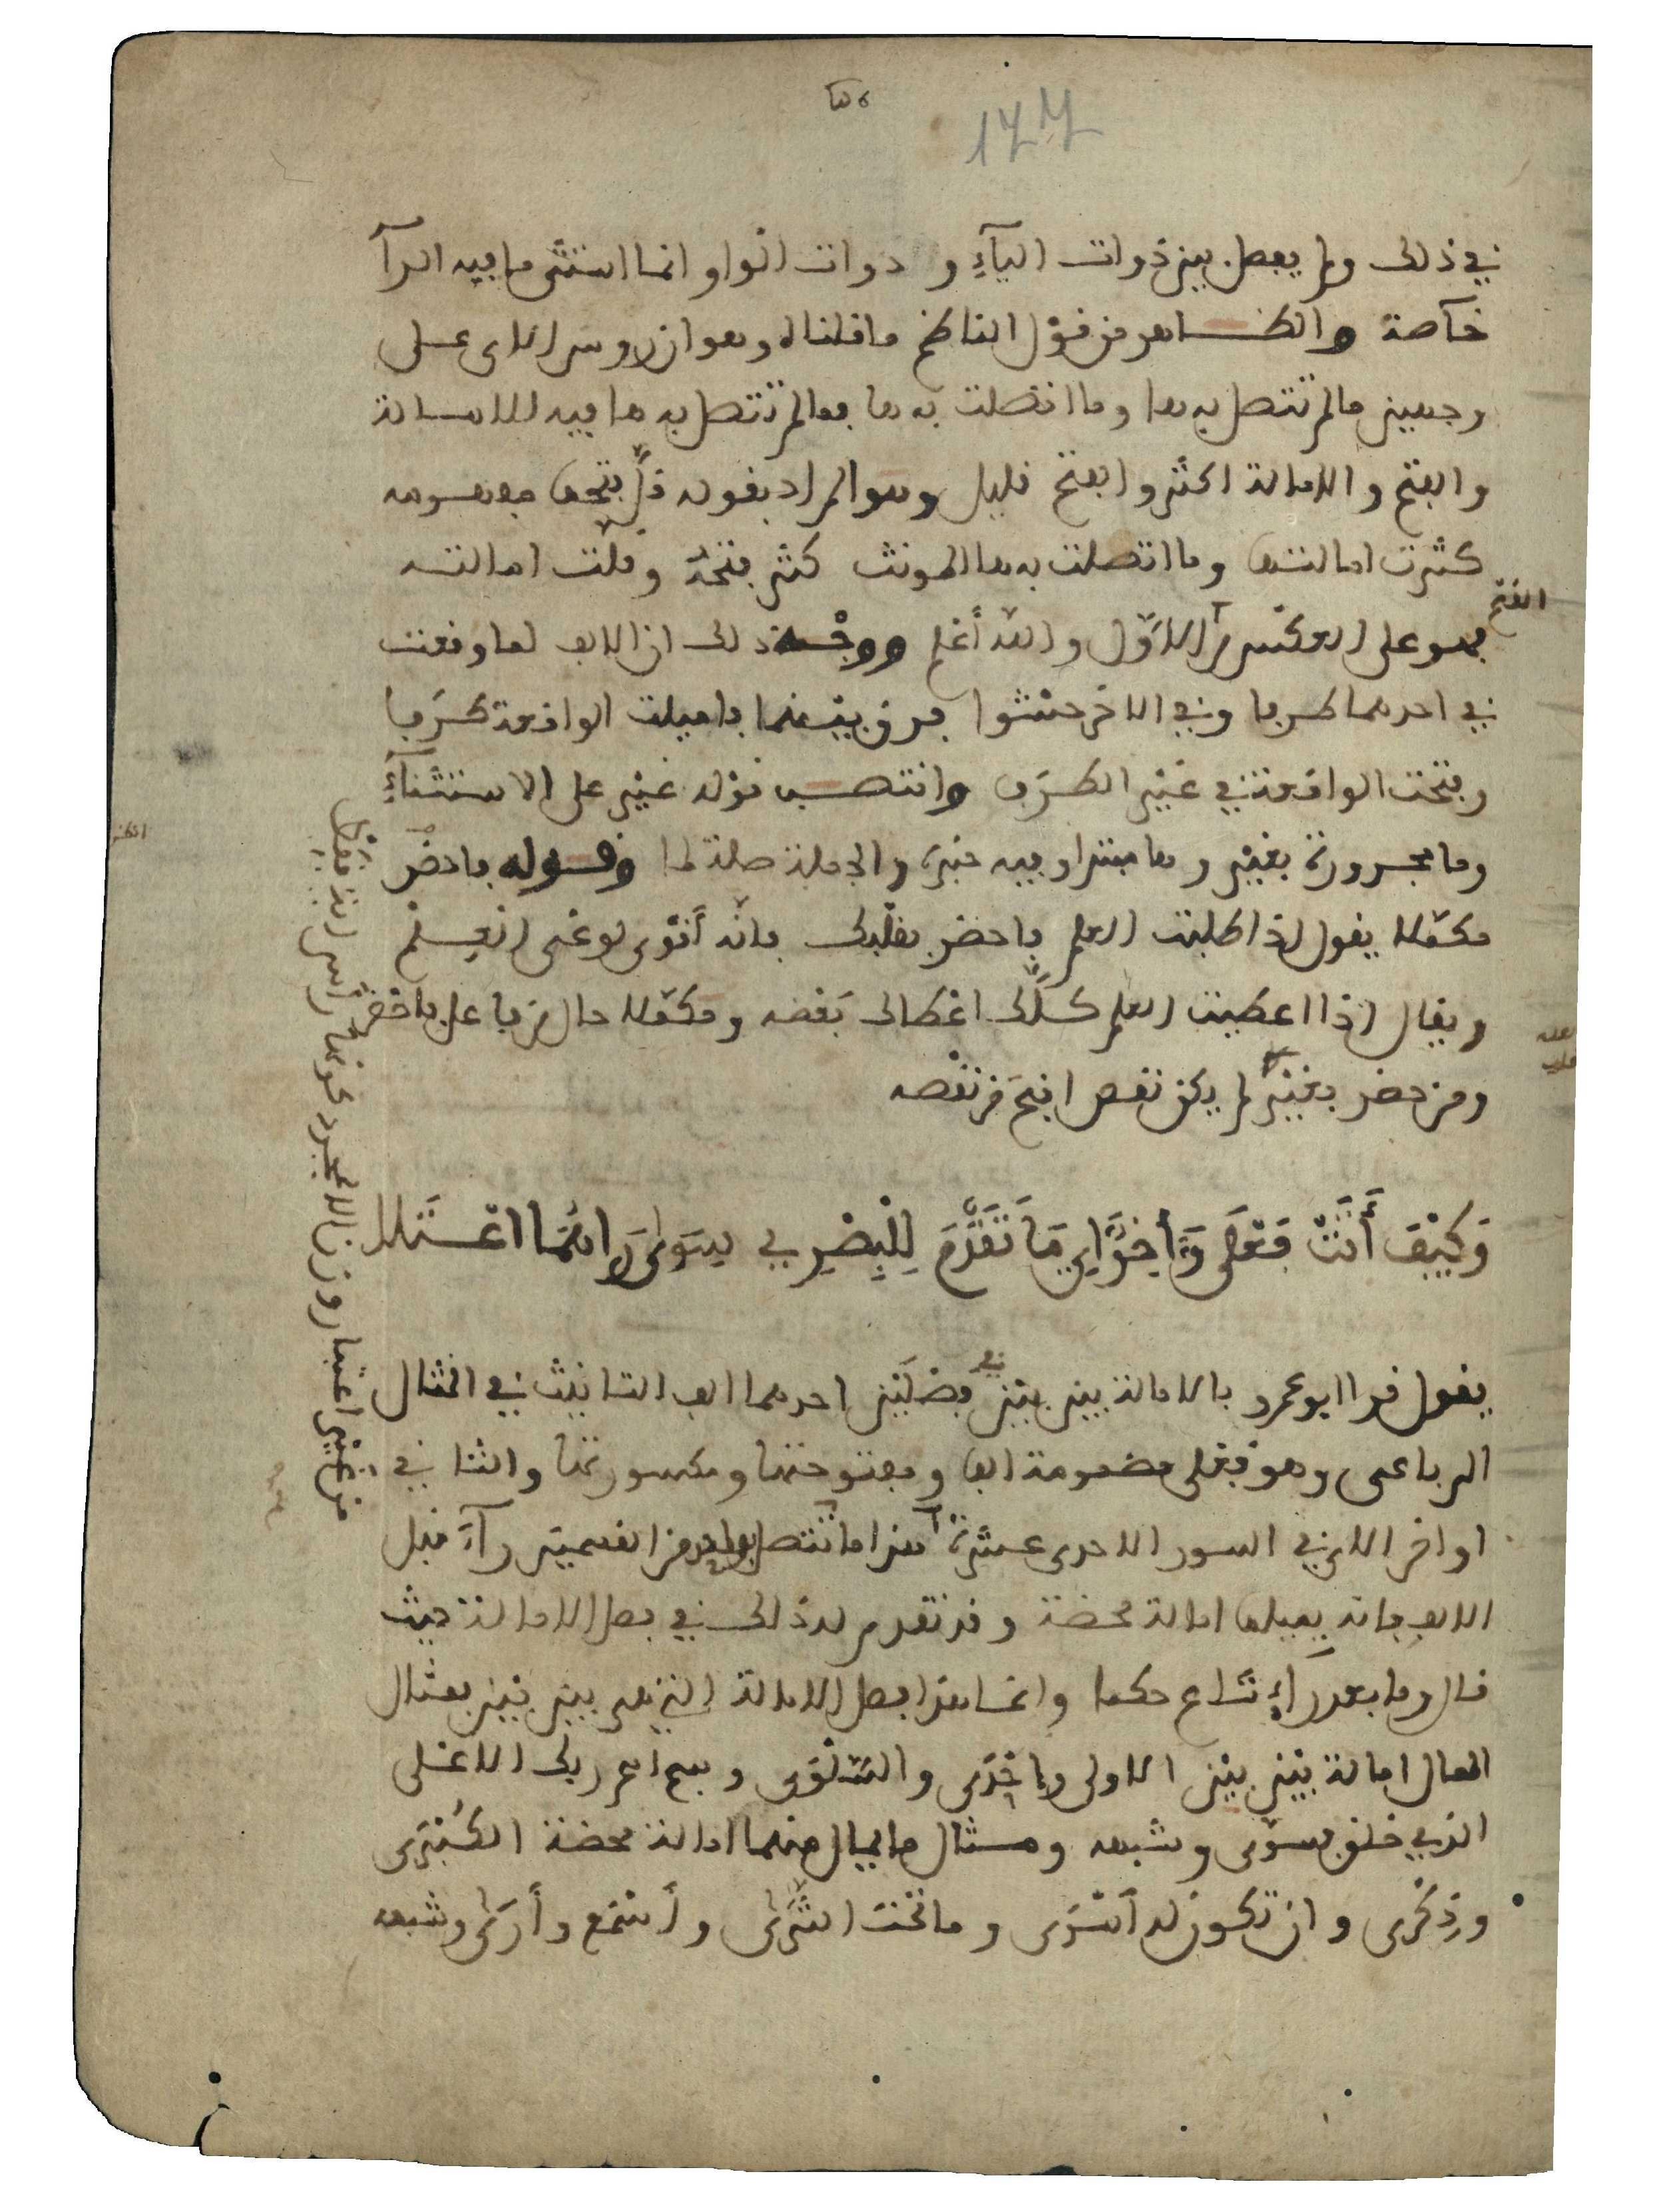 177
في ذلك ولم يفصل بين ذوات اليآء و ذوات الواو انما استثنى ما فيه الرآ
خآصة والظاهر من قول الناظم ما قلناه وهو ان رووس الاي على
وجهين ما لم تتصل به ها وما اتصلت به ها فما لم تتصل به ها فيه الامالة
والفتح والامالة اكثر والفتح قليل وهو المراد بقوله قل فتحها مفهومه
كثرت امالتها وما اتصلت به ها المونث كثر فتحه وقلت امالته
الفتح
فهو على العكس من الاول والله أعلم ووجه ذلك ان الالف لما وقعت
في احدهما طرفا وفي الاخر حشوا فرق بينهما فاميلت الواقعة طرفا
وفتحت الواقعة في غير الطرف وانتصب قوله غير على الاستثنآء
وما مجرورة بغير وها مبتدا وفيه خبره والجملة صلة لما وقوله فاحضر
مكملا يقول اذا طلبت العلم فاحضر بقلبك فانه أقوى لوعي العلم
ويقال اذا اعطيت العلم كلك اعطاك بعضه ومكملا حال من فاعل فاحضر
ومن حضر بغيره لم يكن نقص اقبح من نقصه
وَكَيْفَ أَتَتْ فَعْلَى وَءَاخِرُ ايِ مَا تَقَدَّمَ لِلْبِصْرِي سِوَى رَاهُمَا اعْتَلَا
يقول قرا ابو عمرو بالامالة بين بين في فصلين احدهما الف التانيث في المثال
الرباعي وهو فعلى مضمومة الفا ومفتوحتها ومكسورتها والثاني
اواخر الاي في السور الاحدى عشرة هذا ما لم تتصل بواحد من القسمين رآء قبل
الالف فانه يميلها امالة محضة وقد تقدم له ذلك في فصل الامالة حيث
قال وما بعد راء شاع حكما وانما هذا فصل الامالة التي هي بين بين فمثال
الممال امالة بين بين الاولى واخرى والسلوى و سبح اسم ربك الاعلى
الذي خلق فسوى وشبهه ومثال ما يمال منهما امالة محضة الكبرى
وذكرى و ان تكون له أسرى و ما تحت الثرى و أسمع وأرى وشبهه
من غير اعتبار وزن الا مجرد كونها راس اية فقط